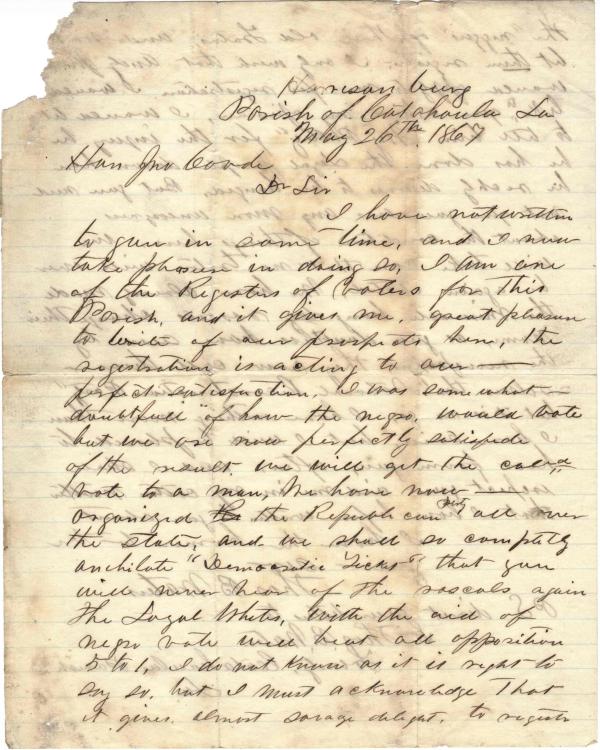 Harrison burg
Parish of Catahoula La
May 26th 1867
Hon Jno Covode
Dr Sir
I have not written
to you in some time, and I now
take pleasure in doing so, I am one
of the Registers of voters for this
Parish, and it gives me, great pleasure
to write of our prospects here, the
registration is acting to our —
perfect satisfaction, I was somewhat —
doubtfull of how the negro, would vote
but we are now perfectly satisfide
of the result, we will get the cold
vote to a man, We have now —
organized the Republican Party all over
the state, and we shall so completly
anihilate "Democratic Ticket" that you
will never hear of the rascals again
the Loyal Whites, with the aid of
negro vote will beat all opposition
5 to 1, I do not Know as it is right to
say so, but I must acknowledge that
it gives, almost savage delight, to registr